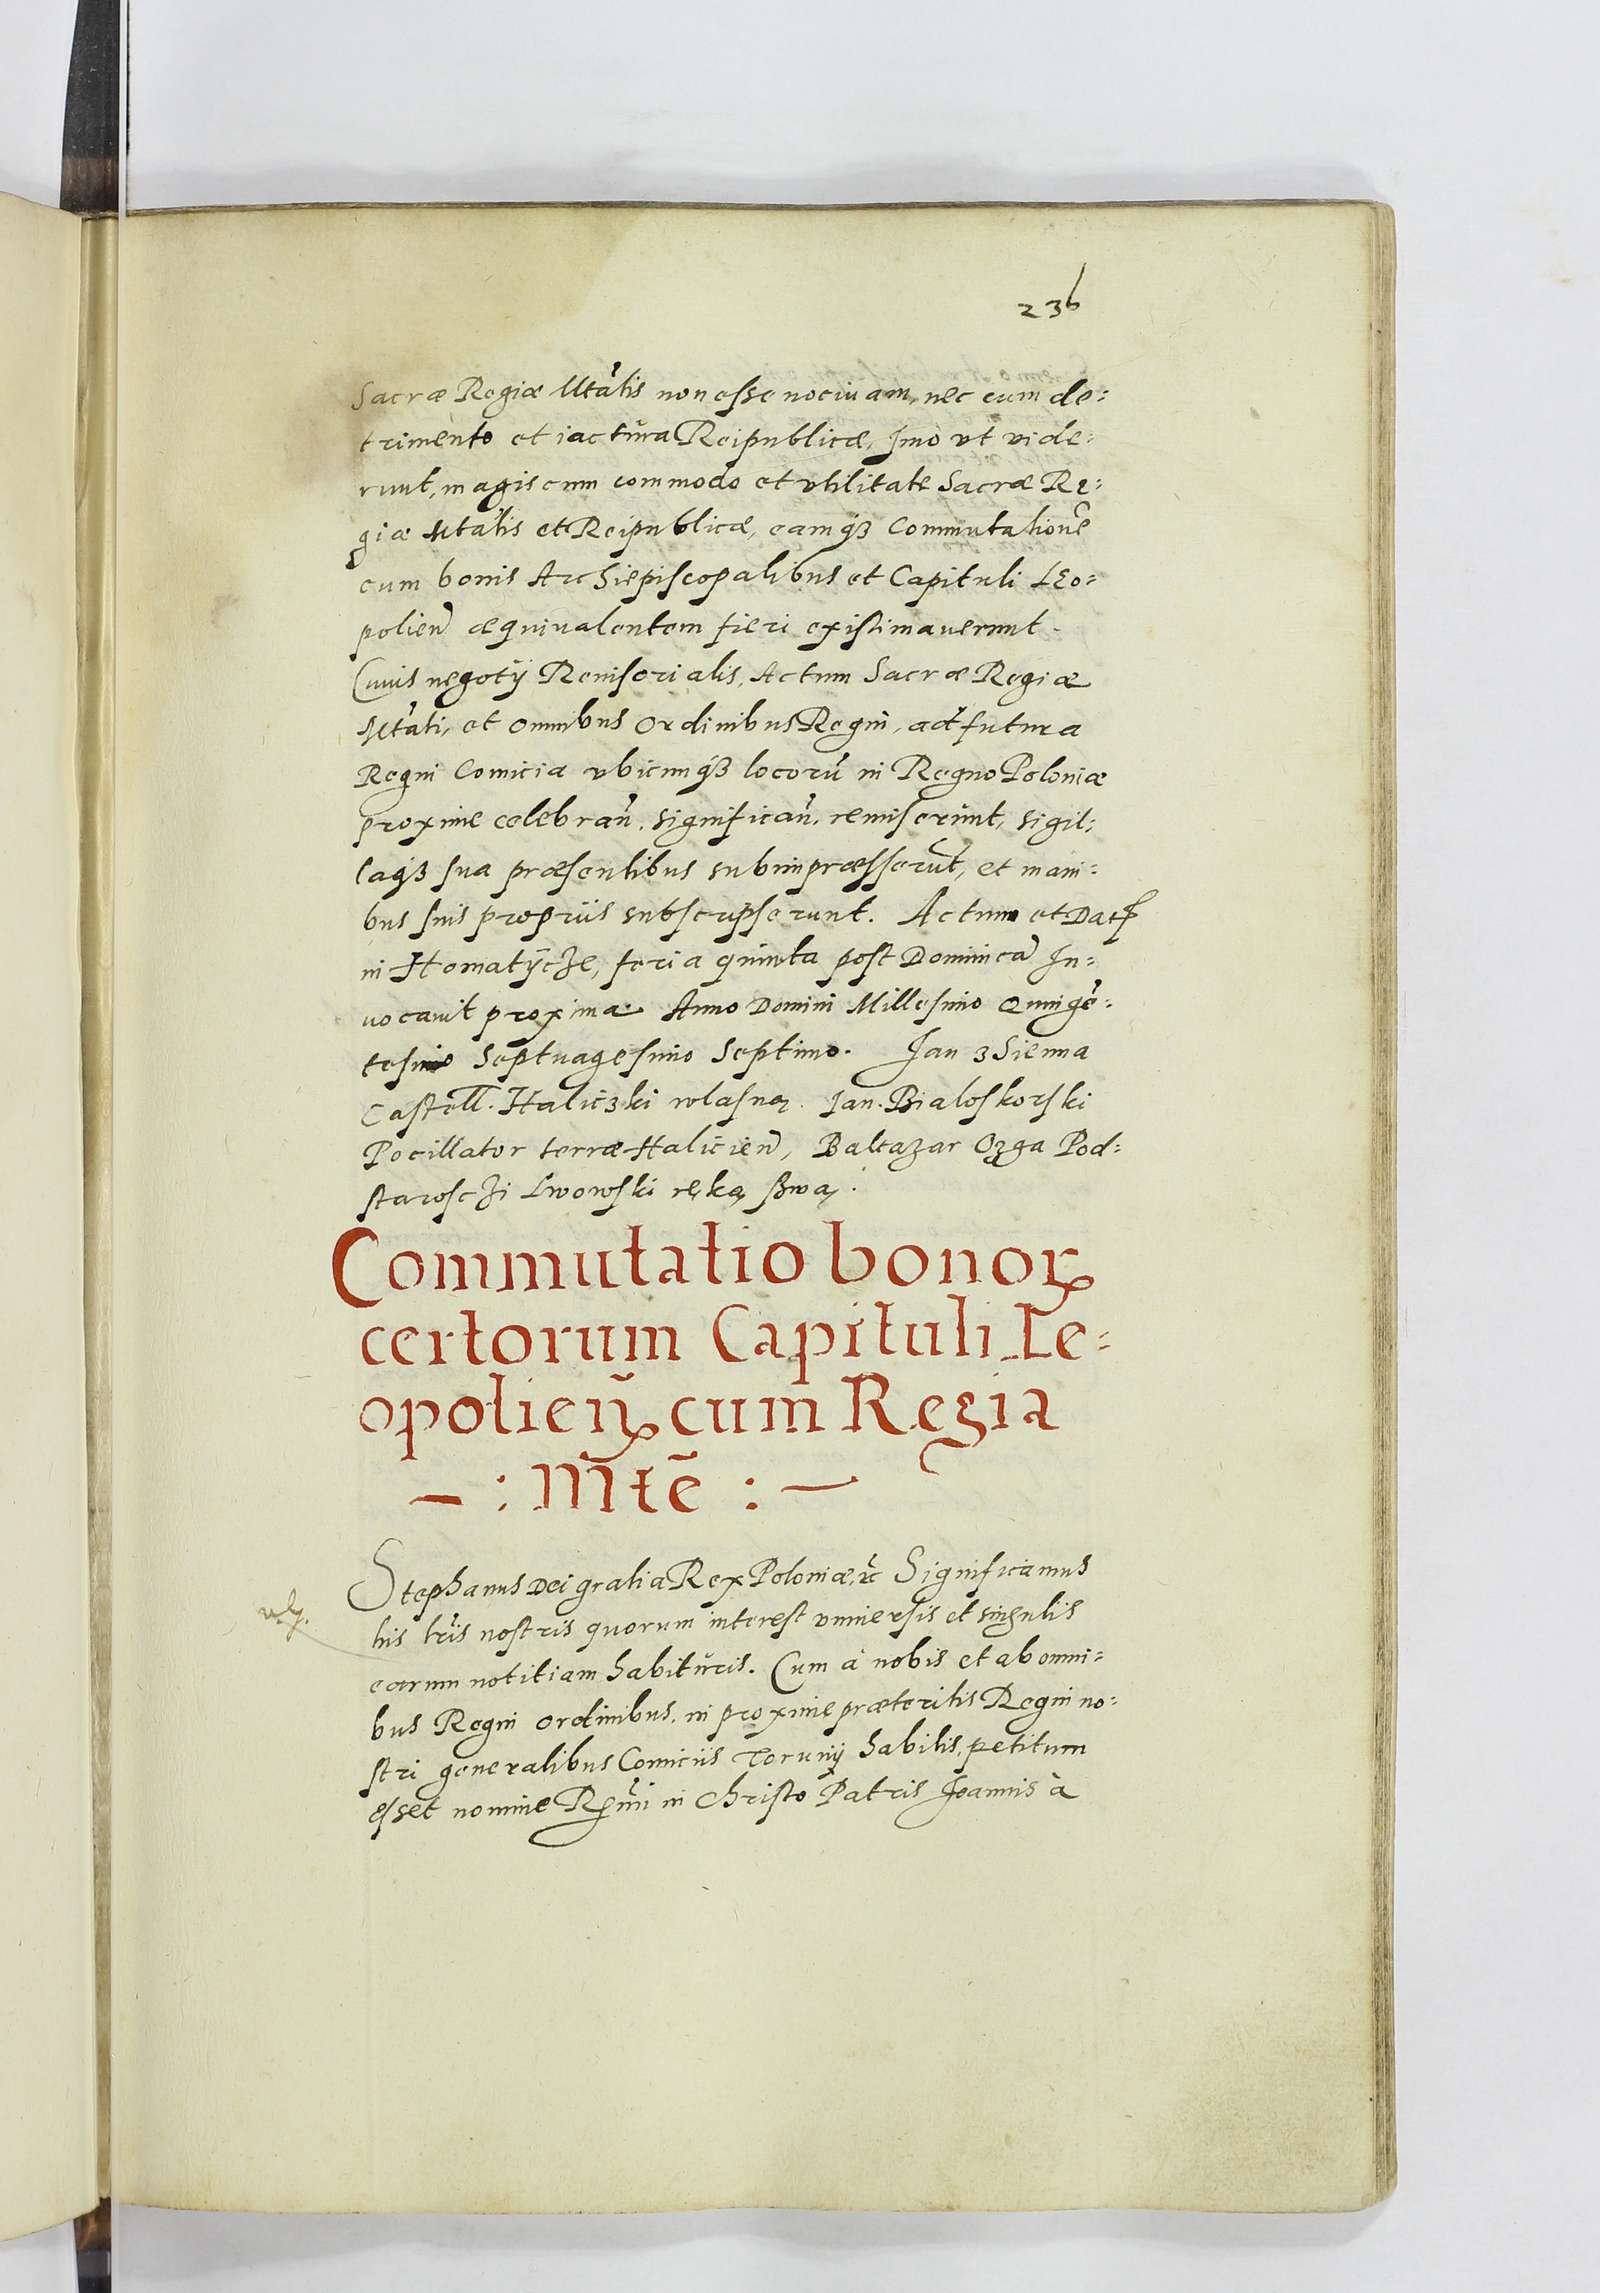 236
Sacræ Regiæ Mtatis non esse nociuam, nec cum de:
trimento et iactura Reipublicæ, Jmo vt vide:
runt, magis cum commodo et vtilitate Sacræ Re:
giæ Mtatis et Reipublicæ, eamqꝫ Commutationē
cum bonis Archiepiscopalibus et Capituli Leo:
polien̄ æquiualentem fieri existimauerunt.
Cuius negotij Remisorialis, Actum Sacræ Regiæ
Mtati, et omnibus Ordinibus Regni, ad futura
Regni Comicia vbicunqꝫ locorū in Regno Poloniæ
proxime celebran̄. significan̄. remiserunt, sigil:
laqꝫ sua præsentibus subimpræsserūt, et mani:
bus suis proprijs subscripserunt. Actum et Dat
in Homatycze, feria quinta post Dominicā In:
uocauit proxima. Anno Domini Millesimo Quingē:
tesimo Septuagesimo Septimo. Jan z Sienna
Castell. Haliczki wlasną. Jan. Bialoskorski
Pocillator terræ Halicien̄, Baltazar Ozga Pod:
starosczi Lwowski ręką swą.
Commutatio bonoꝝ
certorum Capituli Le:
opolien̄ cum Regia
– : Mtē : –
Stephanus Dei gratia Rex Poloniæ, ꝛc Significamus
his lr̄is nostris quorum interest vniuersis et singulis
earum notitiam habituris. Cum à nobis et ab omni:
bus Regni Ordinibus, in proxime præteritis Regni no:
stri generalibus Comiciis Torunij habitis, petitum
esset nomine Rm̄i in Christo Patris Joannis à